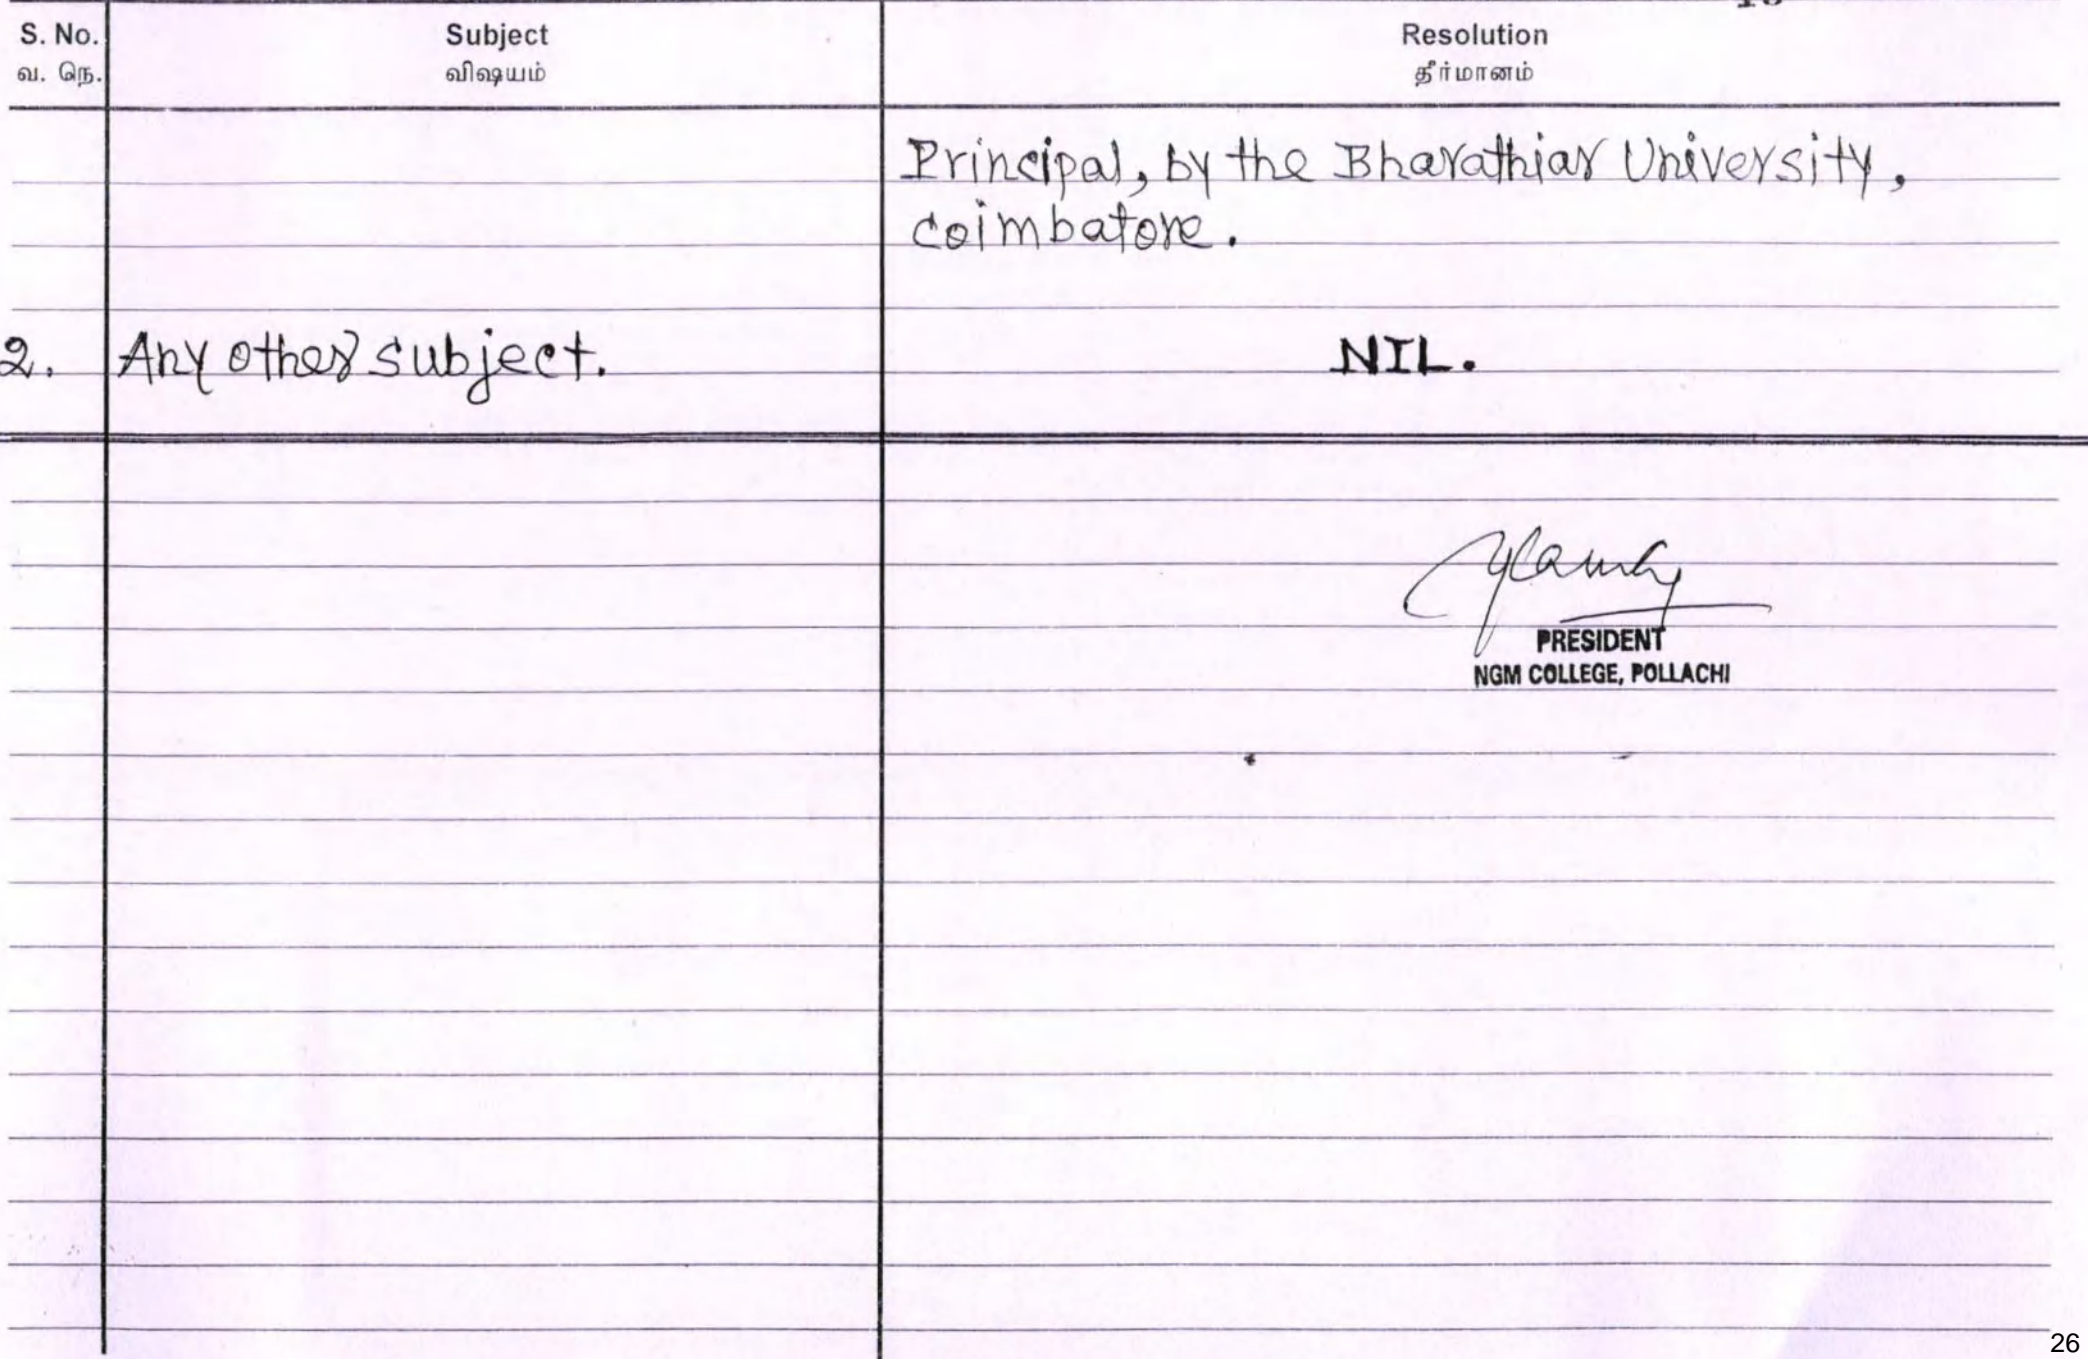 S. No. Subject Resolution
வ. நெ. விஷயம் தீர்மானம்
Principal, by the Bharathiar University,
coimbatore.
2. Any other subject. NIL.
PRESIDENT
NGM COLLEGE, POLLACHI
26